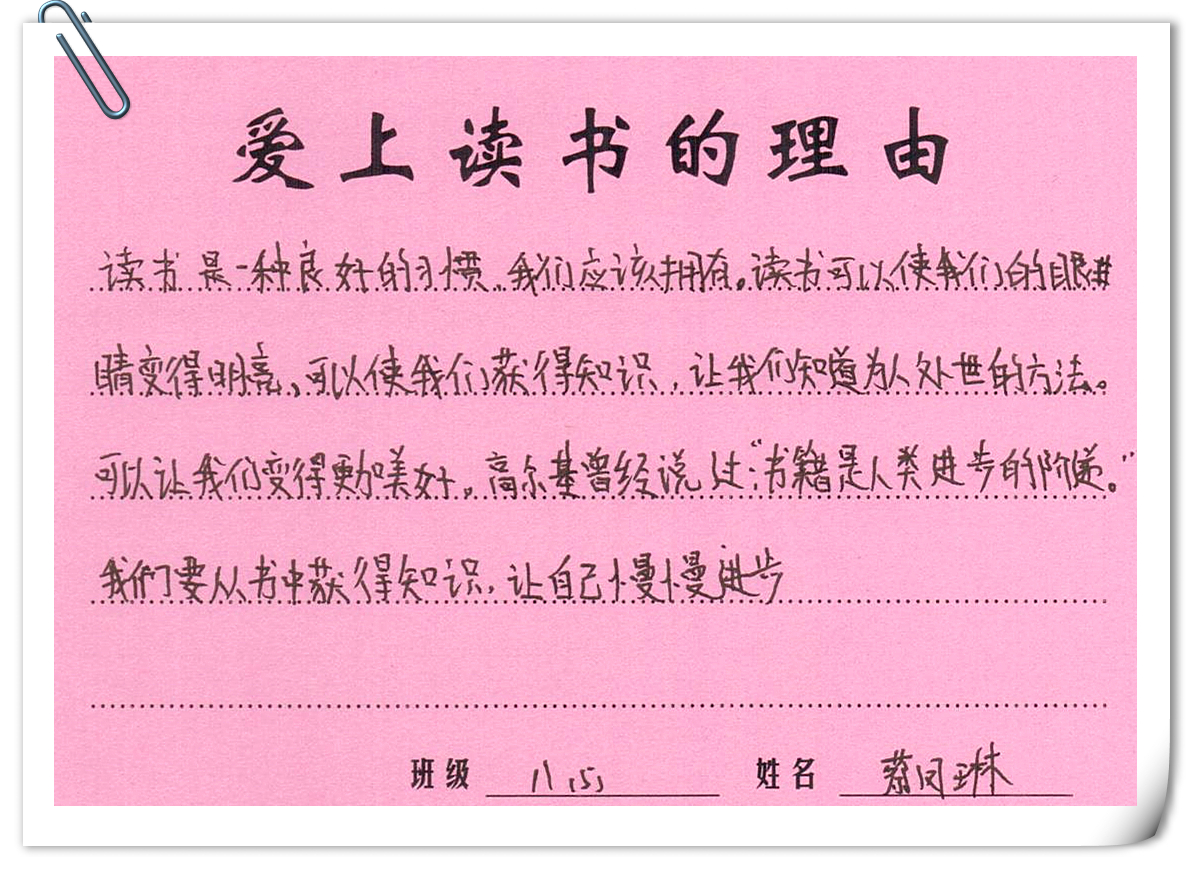 爱上读书的理由
读书是一种良好的习惯，我们应该拥有。读书可以使我们的眼
睛变得明亮，可以使我们获得知识，让我们知道为人处世的方法。
可以让我们变得更加美好。高尔基曾经说过：“书籍是人类进步的阶梯。”
我们要从书中获得知识，让自己慢慢进步
班级 八（5） 姓名 蔡凤琳